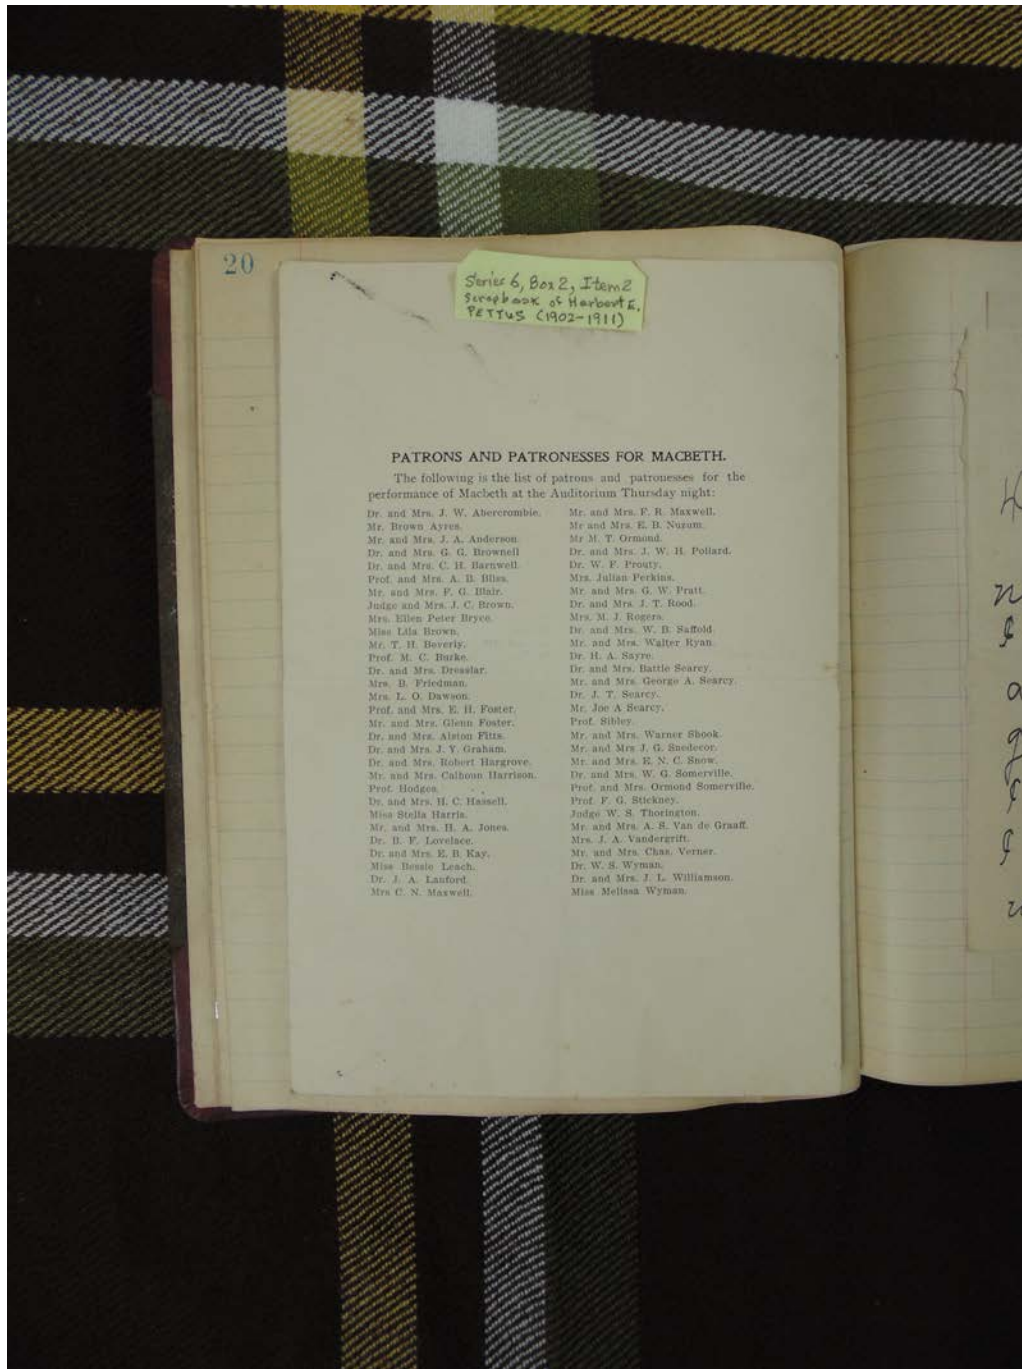 20
Series 6, Box 2, Item 2
Scrapbook of Herbert E.
PETTUS (1902-1911)
PATRONS AND PATRONESSES FOR MACBETH.
The following is the list of patrons and patronesses for the
performance of Macbeth at the Auditorium Thursday night:
Dr. and Mrs. J. W. Abercrombie.
Mr. Brown Ayres.
Mr. and Mrs. J. A. Anderson
Dr. and Mrs. G. G. Brownell
Dr. and Mrs. C. H. Barnwell
Prof. and Mrs. A. B. Bliss.
Mr. and Mrs. F. G. Blair.
Judge and Mrs. J. C. Brown.
Mrs. Ellen Peter Bryce.
Miss Lila Brown.
Mr. T. H. Beverly.
Prof. M. C. Burke.
Dr. and Mrs. Dresslar.
Mrs. B. Friedman.
Mrs. L. O. Dawson.
Prof. and Mrs. E. H. Foster.
Mr. and Mrs. Glenn Foster.
Dr. and Mrs. Alston Fitts.
Dr. and Mrs. J. Y. Graham.
Dr. and Mrs. Robert Hargrove.
Mr. and Mrs. Calhoun Harrison.
Prof. Hodges.
Dr. and Mrs. H. C. Hassell.
Miss Stella Harris.
Mr. and Mrs. H. A. Jones.
Dr. B. F. Lovelace.
Dr. and Mrs. E. B. Kay.
Miss Bessie Leach.
Dr. J. A. Lanford.
Mrs C. N. Maxwell.
Mr. and Mrs. F. R. Maxwell.
Mr and Mrs. E. B. Nuzum.
Mr M. T. Ormond.
Dr. and Mrs. J. W. H. Pollard.
Dr. W. F. Prouty.
Mrs. Julian Perkins.
Mr. and Mrs. G. W. Pratt.
Dr. and Mrs. J. T. Rood.
Mrs. M. J. Rogers.
Dr. and Mrs. W. B. Saffold
Mr. and Mrs. Walter Ryan.
Dr. H. A. Sayre.
Dr. and Mrs. Battle Searcy.
Mr. and Mrs. George A. Searcy.
Dr. J. T. Searcy.
Mr. Joe A Searcy.
Prof. Sibley.
Mr. and Mrs. Warner Shook.
Mr. and Mrs J. G. Snedecor.
Mr. and Mrs. E. N. C. Snow.
Dr. and Mrs. W. G. Somerville.
Prof. and Mrs. Ormond Somerville.
Prof. F. G. Stickney.
Judge W. S. Thorington.
Mr. and Mrs. A. S. Van de Graaff.
Mrs. J. A. Vandergrift.
Mr. and Mrs. Chas. Verner.
Dr. W. S. Wyman.
Dr. and Mrs. J. L. Williamson.
Miss Melissa Wyman.